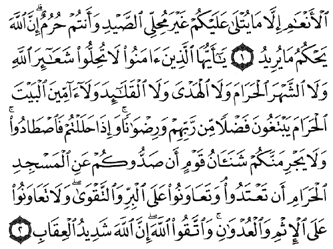 ٱلۡأَنۡعَٰمِ إِلَّا مَا يُتۡلَىٰ عَلَيۡكُمۡ غَيۡرَ مُحِلِّي ٱلصَّيۡدِ وَأَنتُمۡ حُرُمٌۗ إِنَّ ٱللَّهَ
يَحۡكُمُ مَا يُرِيدُ ١ يَٰٓأَيُّهَا ٱلَّذِينَ ءَامَنُواْ لَا تُحِلُّواْ شَعَٰٓئِرَ ٱللَّهِ
وَلَا ٱلشَّهۡرَ ٱلۡحَرَامَ وَلَا ٱلۡهَدۡيَ وَلَا ٱلۡقَلَٰٓئِدَ وَلَآ ءَآمِّينَ ٱلۡبَيۡتَ
ٱلۡحَرَامَ يَبۡتَغُونَ فَضۡلٗا مِّن رَّبِّهِمۡ وَرِضۡوَٰنٗاۚ وَإِذَا حَلَلۡتُمۡ فَٱصۡطَادُواْۚ
وَلَا يَجۡرِمَنَّكُمۡ شَنَـَٔانُ قَوۡمٍ أَن صَدُّوكُمۡ عَنِ ٱلۡمَسۡجِدِ
ٱلۡحَرَامِ أَن تَعۡتَدُواْۘ وَتَعَاوَنُواْ عَلَى ٱلۡبِرِّ وَٱلتَّقۡوَىٰۖ وَلَا تَعَاوَنُواْ
عَلَى ٱلۡإِثۡمِ وَٱلۡعُدۡوَٰنِۚ وَٱتَّقُواْ ٱللَّهَۖ إِنَّ ٱللَّهَ شَدِيدُ ٱلۡعِقَابِ ٢